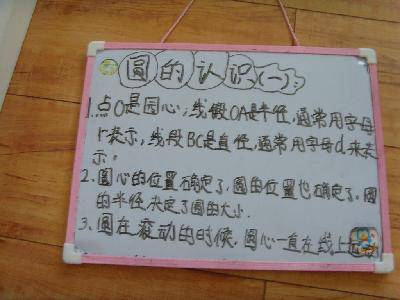 圆的认识(一)
1.点O是园心,线段OA是半径,通常用字母
r表示,线段BC是直径,通常用字母d来表
示。
2.圆心的位置确定了,圆的位置也确定了。圆
的半径决定了圆的大小.
3、圆在滚动的时候.圆心一直在线上